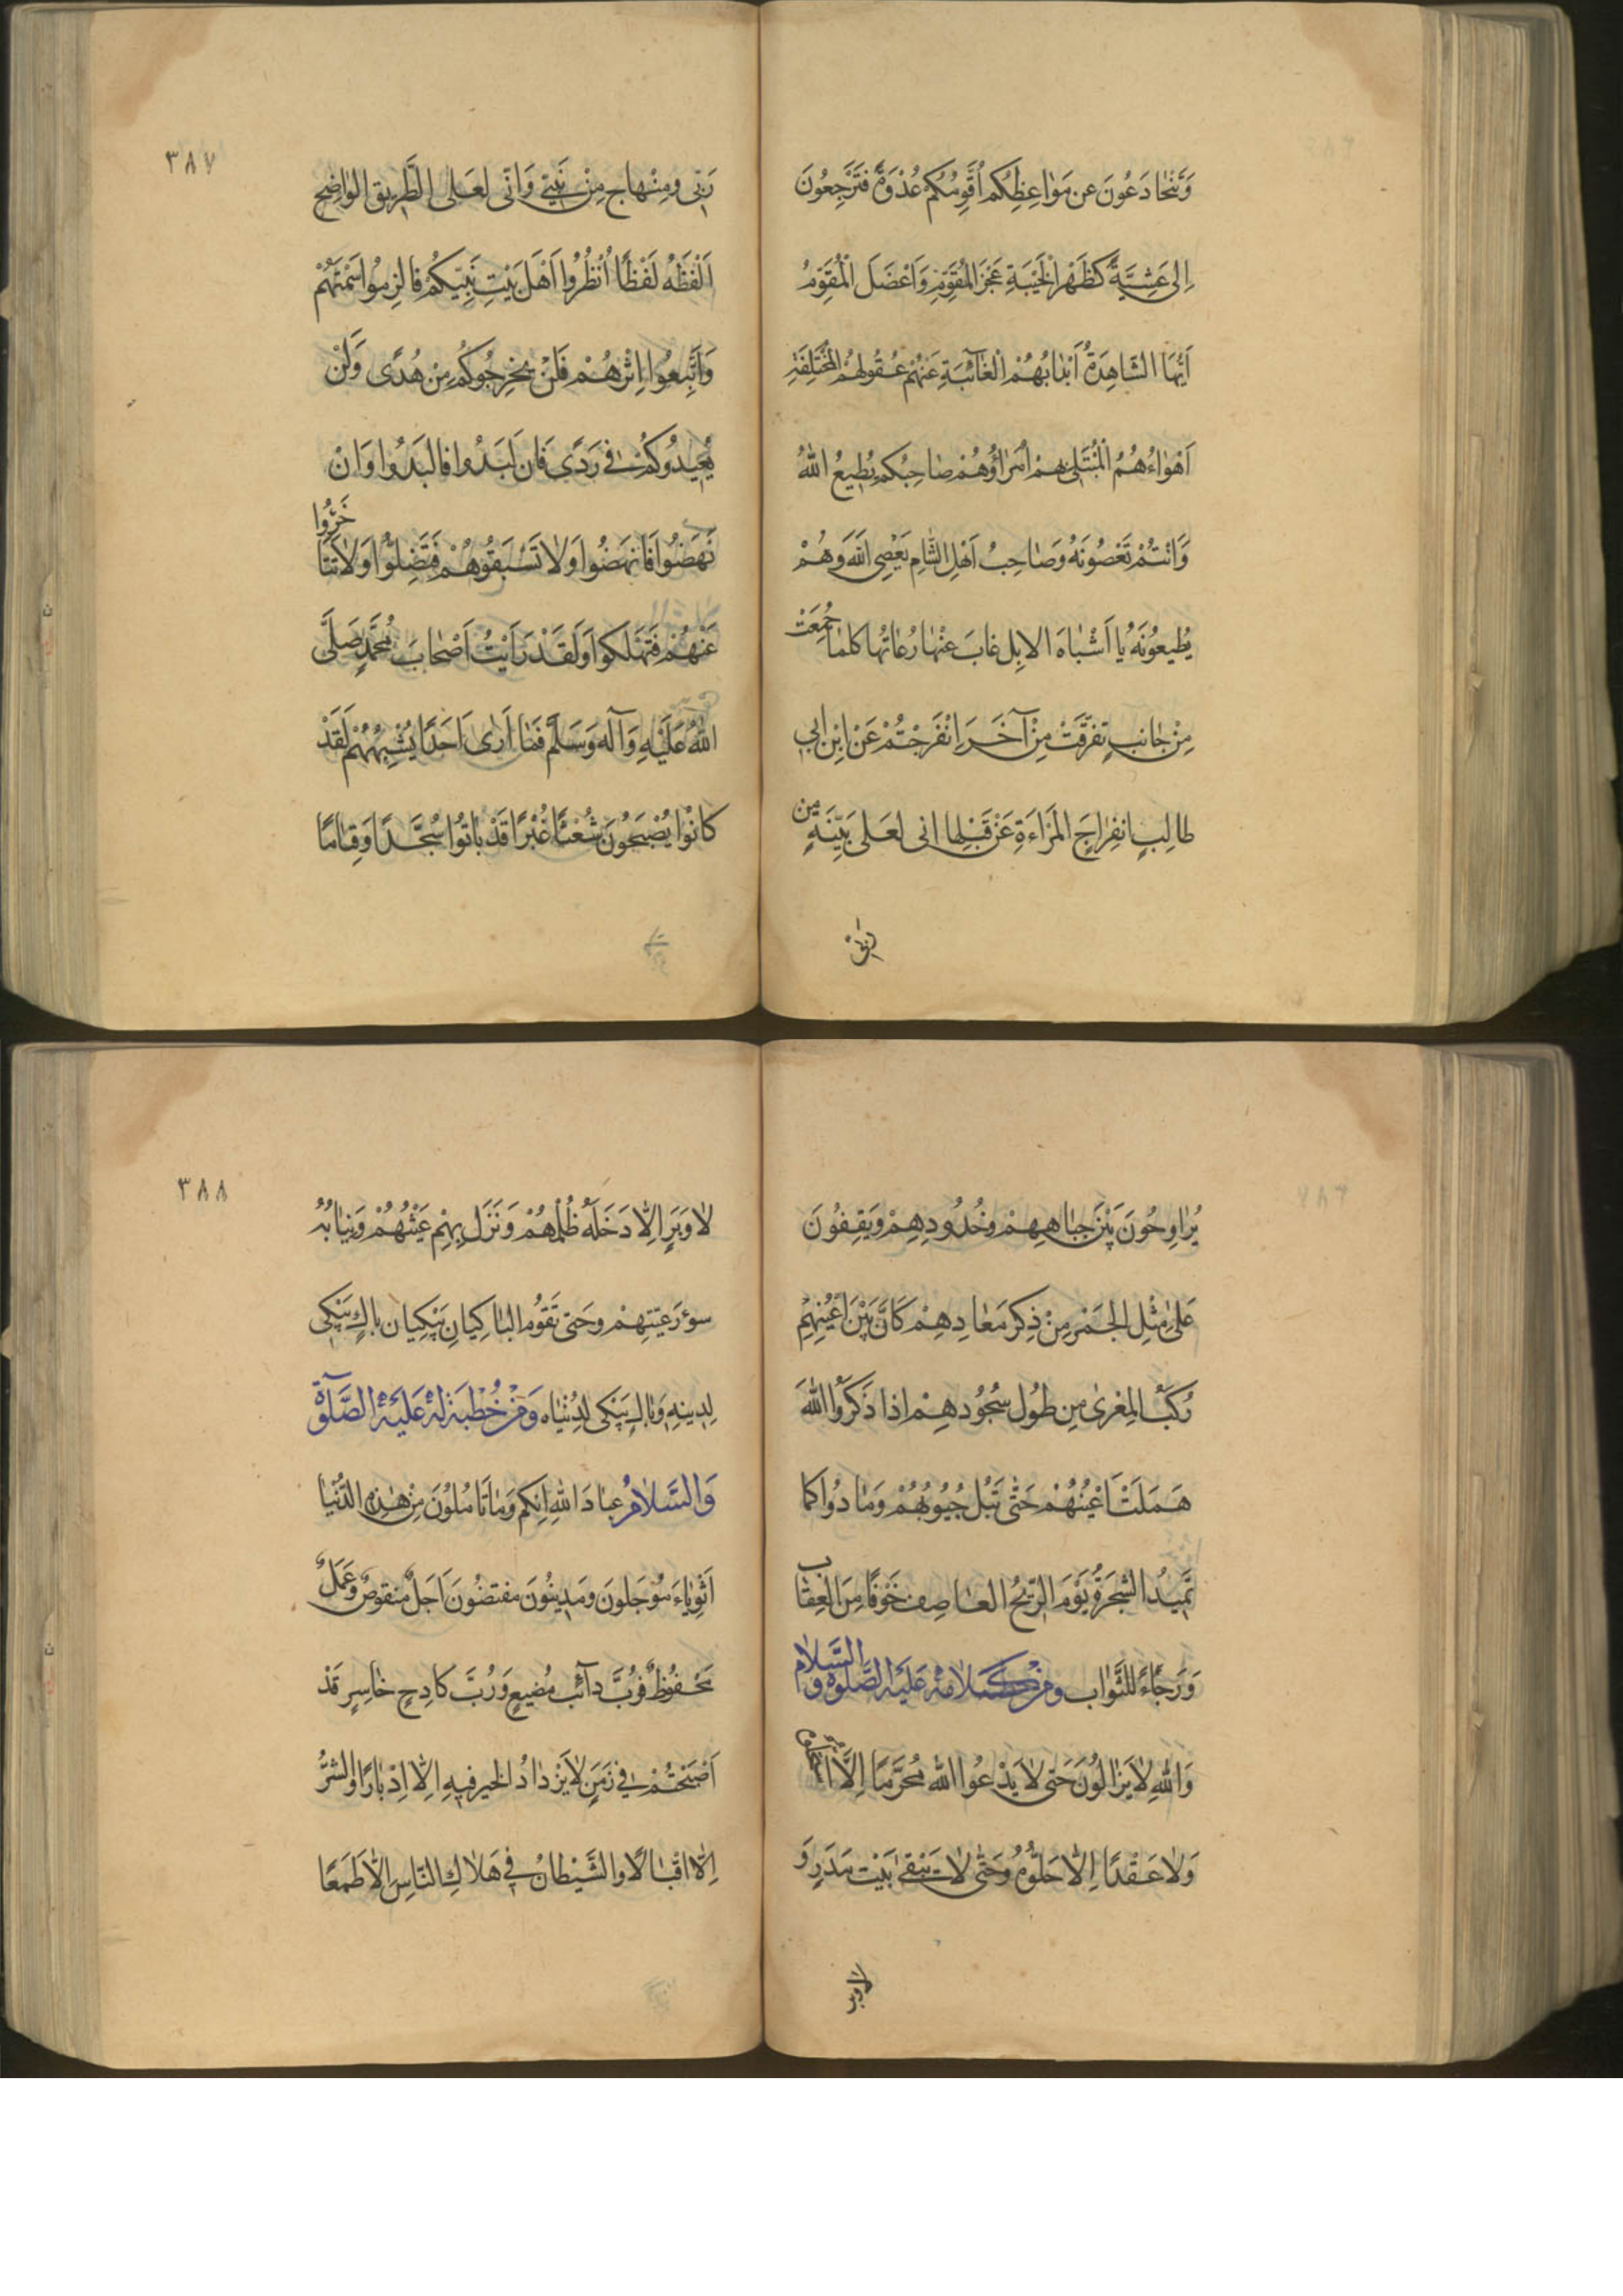 وَتَتَخَادَعُونَ عن مَوٰاعِظِكُم اُقَوِّمُكُم غُدْوَةً فَتَرْجِعُونَ
اِلىَ عَشِيَّةً كَظَهْرِ الْحَيْبَةِ عَجَزَ المُقَوِّمِ وَاَعْضَلَ الْمُقَوَّمُ
اَيُّهَا الشَّاهِدَةُ اَبْدٰانُهُمْ الْغٰائِبَةِ عَنْهُمْ عُقُولهُمُ المُخْتَلِفَةِ
اَهْوٰاءُهُمُ الْمُبْتَلىٰ بِهِمْ اُمَرٰاؤُهُمْ صٰاحِبُكُم يُطِيعُ اللهُ
وَاَنْتُمْ تَعْصُونَهُ وَصٰاحِبُ اَهْلِ الشّامِ يَعْصِى اللهَ وَهُمْ
يُطيعُونَهُ يٰا اَشْبٰاهَ الابِلِ غابَ عَنْهٰا رُعٰاتُهٰا كلمٰا جُمِعَتْ
مِنْ جٰانبٍ تفرّقَتْ مِنْ آخَرَ اِنْفَرَجْتُمْ عَنْ اِبْنِ ابي
طالِبٍ انفِرٰاجَ المَرْاَةِ عَنْ قُبُلِهٰا انى لعَلى بَيِّنَةٍ من
ربّى
٣٨٧
رَبّى ومِنْهاجٍ مِنْ نَبِيّى وَاَنّى لَعَلى الطَّريق الوٰاضِحِ
اَلْفِظُهُ لَفْظًا اُنْظُرُوا اَهْلَ بَيْتِ نَبِيّكُم فَالزِموُا سَمْتَهُمْ
وَاتَّبِعُوا اِثْرَهُمْ فَلَنْ يخرِجُوكُم مِنْ هُدًى وَلَنْ
يُعيدُوكُمْ في رَدًى فَان لَبَدُوا فَالبَدُوا وَاِنْ
نَهَضُوا فَانهَضُوا وَلاٰ تَسْبَقُوهُمْ فتَضِلُّوا وَلاٰ تَتَاخَّرُوا
عَنْهُمْ فَتَهْلَكوا وَلَقَدْ رَاَيْتُ اَصْحٰابَ مُحَمَّدٍ صَلَّى
اللهُ عَلَيْهِ وَآله وَسَلَّمَ فَمٰا اَرٰى اَحَدًا يُشْبِهُهُمْ لَقَدْ
كانُوا يُصْبِحُونَ شُعْثًا غُبْرًا قَدْ بٰاتُوا سُجَّدًا وَقِيٰامًا
يُرٰاوِحُونَ بَيْنَ جِبٰاهِهِمْ وخُدُودِهِمْ وَيَقِفُونَ
عَلىٰ مِثْلِ الجَمْرِ مِنْ ذِكرِ مَعٰادِهِمْ كَاَنَّ بَيْنَ اَعْيُنِهِمْ
رُكَبَ المِعْزىٰ مِن طُولِ سُجُودِهِمْ اِذا ذَكَرُوا اللهَ
هَمَلَتْ اَعْيُنُهُمْ حَتّٰى تَبُلَ جُيُوبُهُمْ وَمٰادُوا كما
تَميدُ الشّجَرَةُ يَوْمَ الرّيحُ العٰاصِفِ خَوْفًا مِنَ العِقٰاب
وَرَجٰاءً لِلثَّوٰاب ومِنْ كَلامِهِ عَليَهِ الصَّلٰوة وَالسَّلاٰم
وَاللهِ لاٰ يَزٰالُونَ حَتى لاٰ يَدْعُوا الله مُحَرَّمًا اِلَّا
وَلاٰ عَقْدًا اِلّاٰ حَلّوُهُ وَحَتى لاٰ يَبْقىٰ بَيْت مَدَرٍ وَ
لاوبر
٣٨٨
لاٰ وَبَرٍ اِلّاٰ دَخَلَهُ ظُلْمُهُمْ وَنَزَلَ بِهِم عَيْثُهُمْ وَنبٰا بهُ
سوءُ رَعيَتِهِمْ وحَتى تَقوُم البٰاكِيٰانِ يَبْكِيٰان باكٍ يَبْكى
لِدِينِهِ وَبٰاكٍ يَبْكى لِدُنْيٰاه وَمِنْ خُطْبَةٍ لَهُ عَلَيَهِ الصَّلٰوةُ
وَالسَّلاٰمُ عِبٰادَ اللهِ اِنكم وَمٰا تَامُلوُنَ مِنْ هٰذِهِ الدُّنْيٰا
اَثْوِيٰاءُ مُوَجَلُونَ ومَدِينُونَ مقتضُونَ اَجَلٌ منقوصٌ وعَمَلٌ
مَحْفُوظٌ فرُبَّ دآئب مُضيعٍ وَرُبَّ كادِحٍ خٰاسِرٍ قَدْ
اَصْبَحْتُمْ في زَمَنٍ لاٰ يَزْدٰادُ الخير فيهِ اِلّاٰ اِدْبٰارًا وَالشّرُّ
اِلّا اقبٰالًا وَالشَّيْطٰانُ في هَلاٰكِ النّاسِ اِلّاٰ طَمَعًا